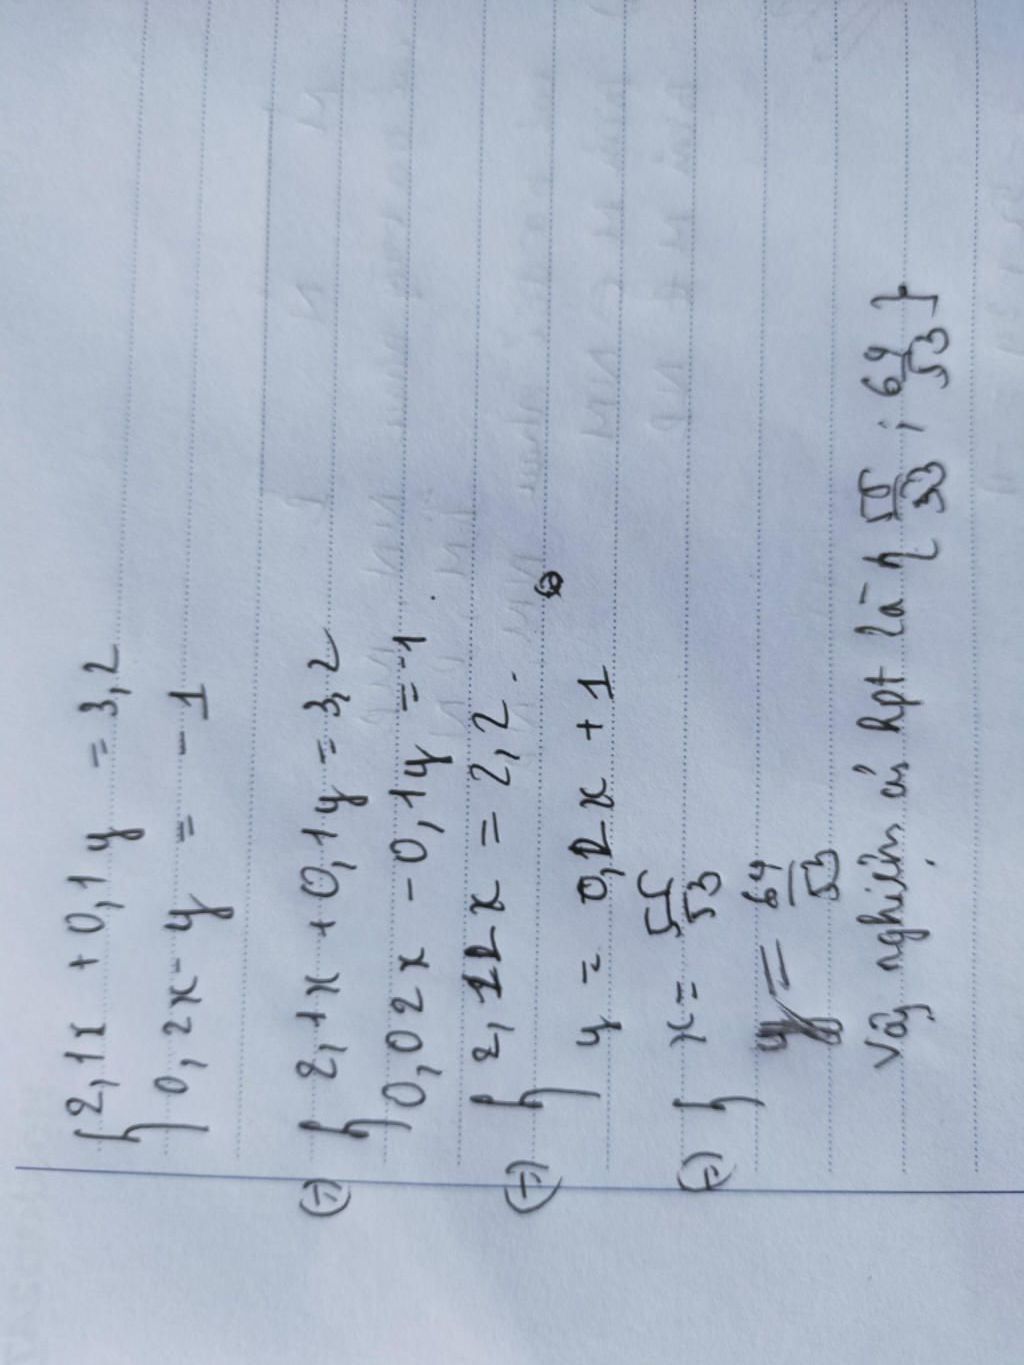 {2,1x + 0,1y = 3,2
0,2x - y = - 1
(=) {2,1x + 0,1y = 3,2
0,02x - 0,1y = -1
(=) {2,12x = 2,2.
y = 0,2x + 1
(=) {x = 55/53
y = 64/53
Vậy nghiệm của hpt là { 55/53 ; 64/53 }